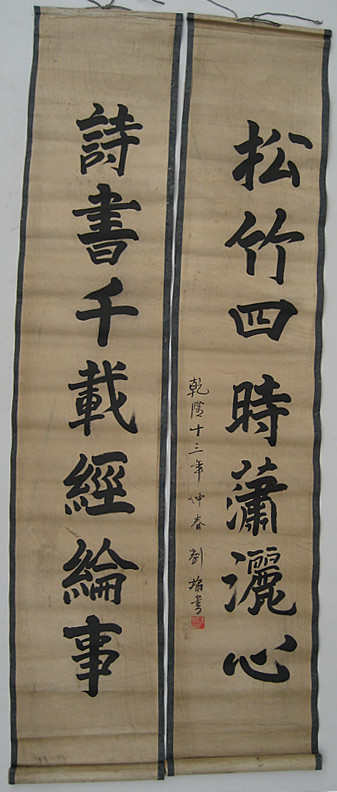 松竹四時瀟灑心
乾隆十三年仲春 劉墉書
詩書千載經綸事